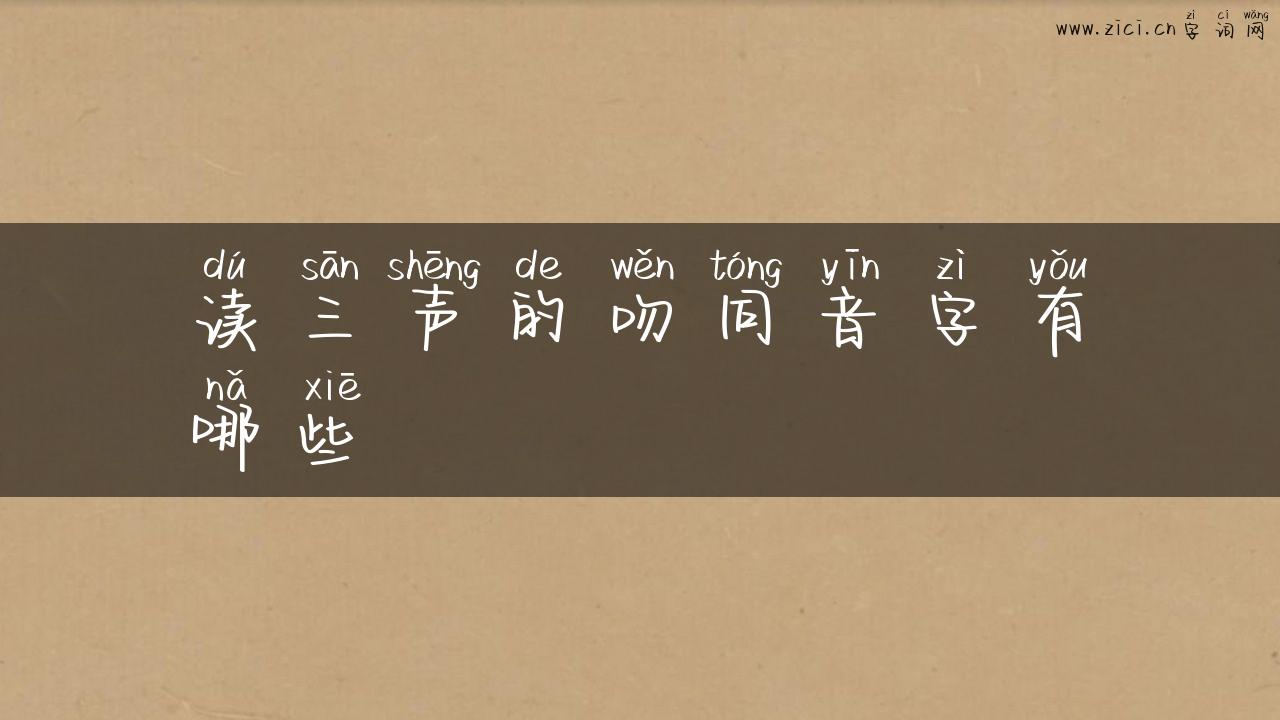 zì cí wǎng
www.zici.cn 字 词 网
dú sān shēng de wěn tóng yīn zì yǒu
读 三 声 的 吻 同 音 字 有
nǎ xiē
哪 些